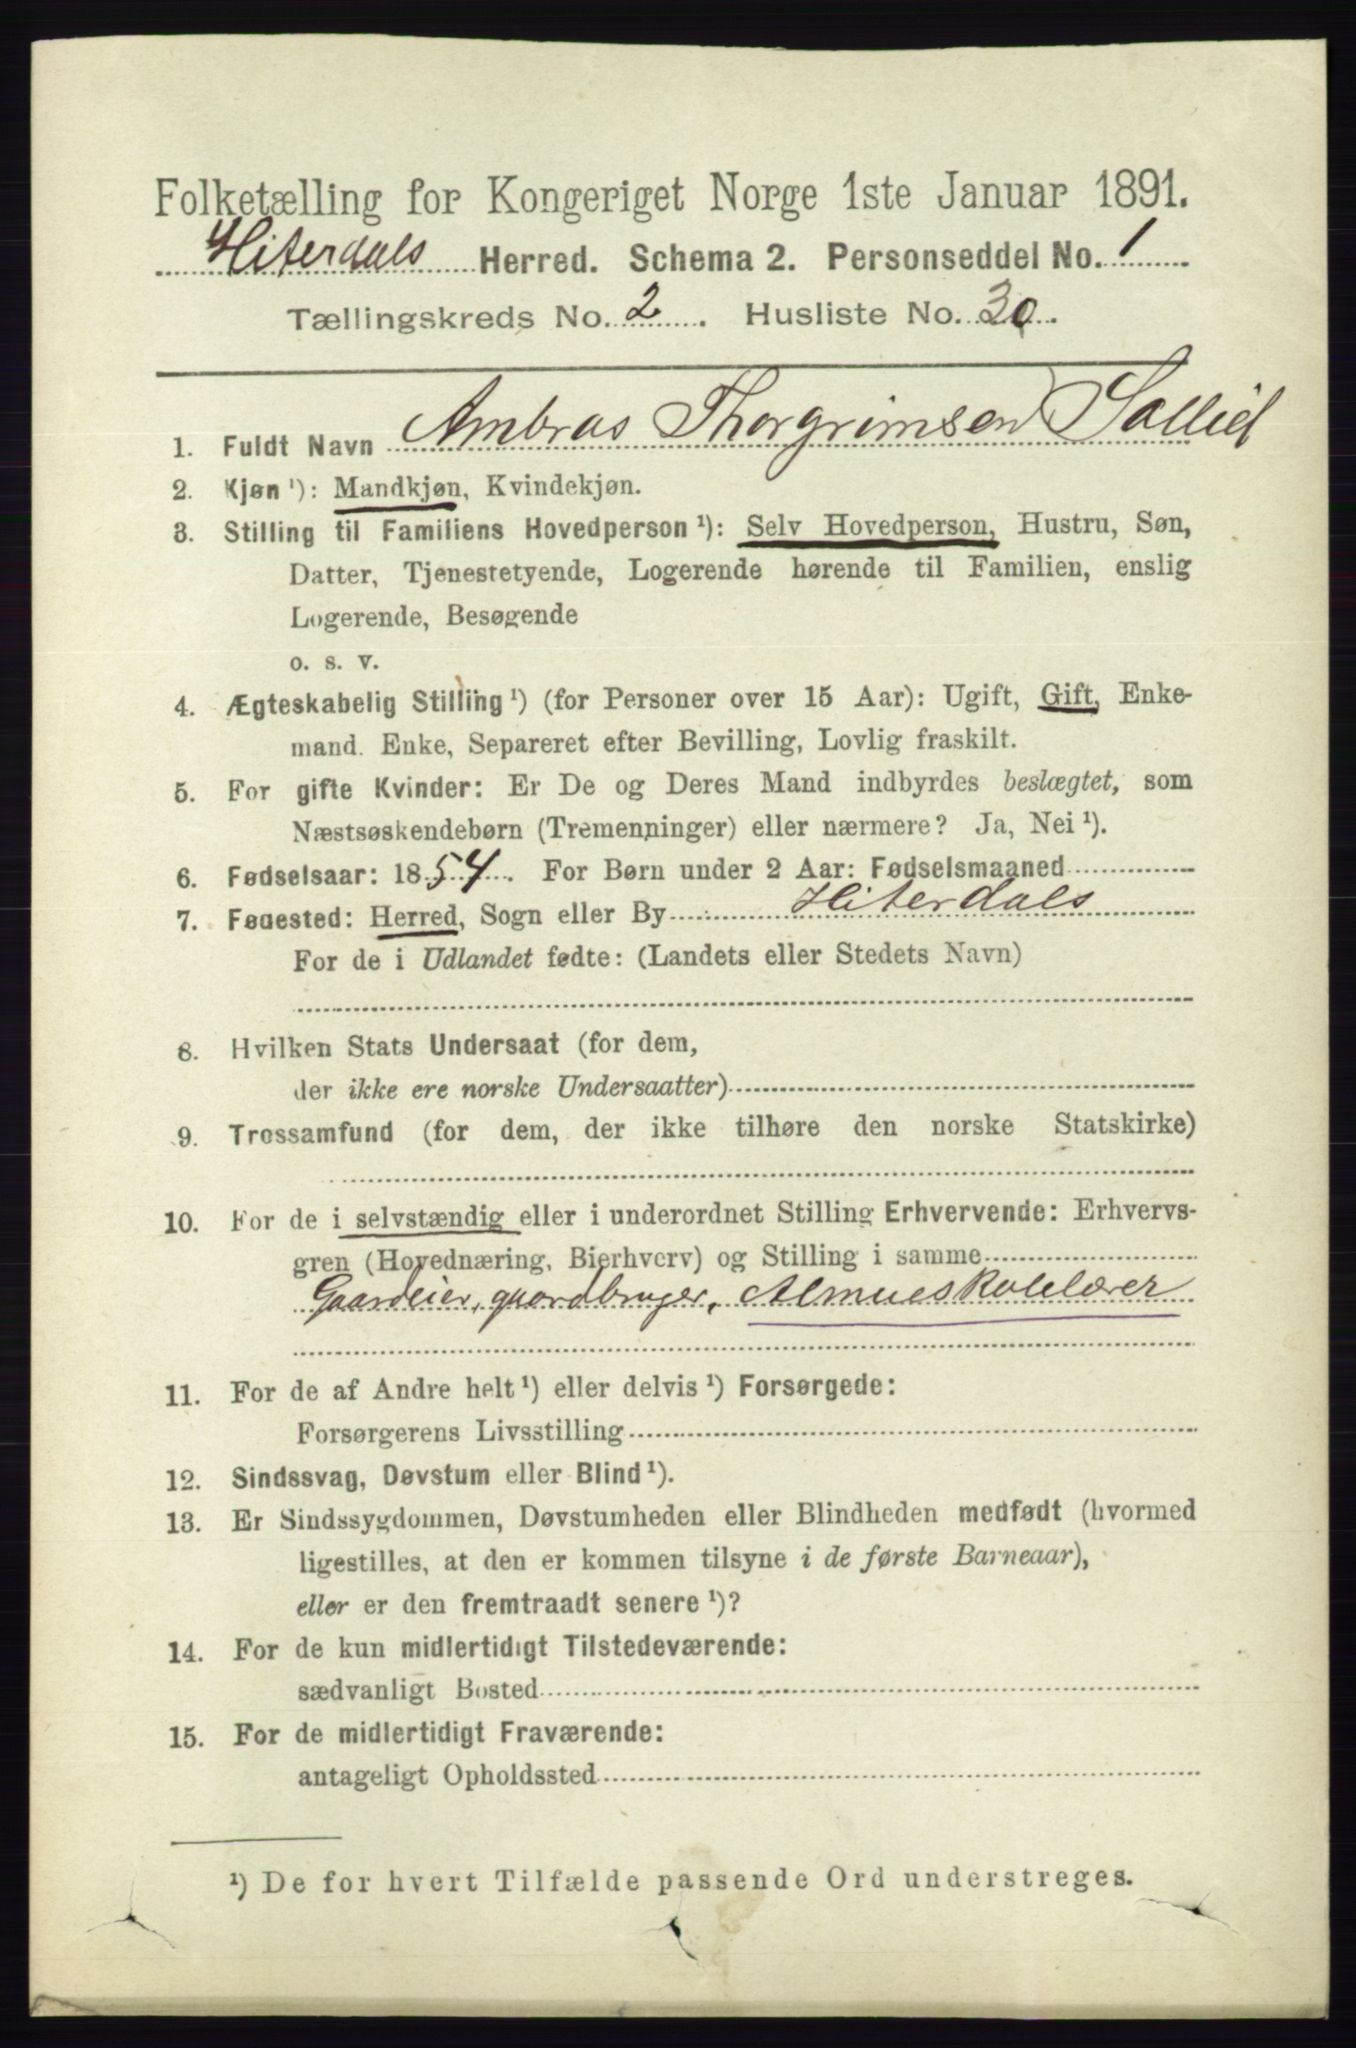 Folketælling for Kongeriget Norge 1ste Januar 1891.
Hiterdals Herred. Schema 2. Personseddel No. 1
Tællingskreds No. 2. Husliste No. 30.
1. Fuldt Navn Ambras Thorgrimsen
2. Kjøn ¹): Mandkjøn, Kvindekjøn.
3. Stilling til Familiens Hovedperson ¹): Selv Hovedperson, Hustru, Søn,
Datter, Tjenestetyende, Logerende hørende til Familien, enslig
Logerende, Besøgende
o. s. v.
4. Ægteskabelig Stilling ¹) (for Personer over 15 Aar): Ugift, Gift, Enke-
mand. Enke, Separeret efter Bevilling, Lovlig fraskilt.
5. For gifte Kvinder: Er De og Deres Mand indbyrdes beslægtet, som
Næstsøskendebørn (Tremenninger) eller nærmere? Ja, Nei ¹).
6. Fødselsaar: 1854. For Børn under 2 Aar: Fødselsmaaned
7. Fødested: Herred, Sogn eller By Hiterdals
For de i Udlandet fødte: (Landets eller Stedets Navn)
8. Hvilken Stats Undersaat (for dem,
der ikke ere norske Undersaatter)
9. Trossamfund (for dem, der ikke tilhøre den norske Statskirke)
10. For de i selvstændig eller i underordnet Stilling Erhvervende: Erhvervs-
gren (Hovednæring, Bierhverv) og Stilling i samme
Gaardeier, gaardbruger, Almueskolelærer
11. For de af Andre helt ¹) eller delvis ¹) Forsørgede:
Forsørgerens Livsstilling
12. Sindssvag, Døvstum eller Blind ¹).
13. Er Sindssygdommen, Døvstumheden eller Blindheden medfødt (hvormed
ligestilles, at den er kommen tilsyne i de første Barneaar),
eller er den fremtraadt senere ¹)?
14. For de kun midlertidigt Tilstedeværende:
sædvanligt Bosted
15. For de midlertidigt Fraværende:
antageligt Opholdssted
¹) De for hvert Tilfælde passende Ord understreges.